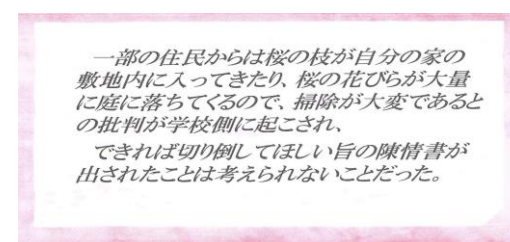 一部の住民からは桜の枝が自分の家の
敷地内に入ってきたり、桜の花びらが大量
に庭に落ちてくるので、掃除が大変であると
の批判が学校側に起こされ、
できれば切り倒してほしい旨の陳情書が
出されたことは考えられないことだった。